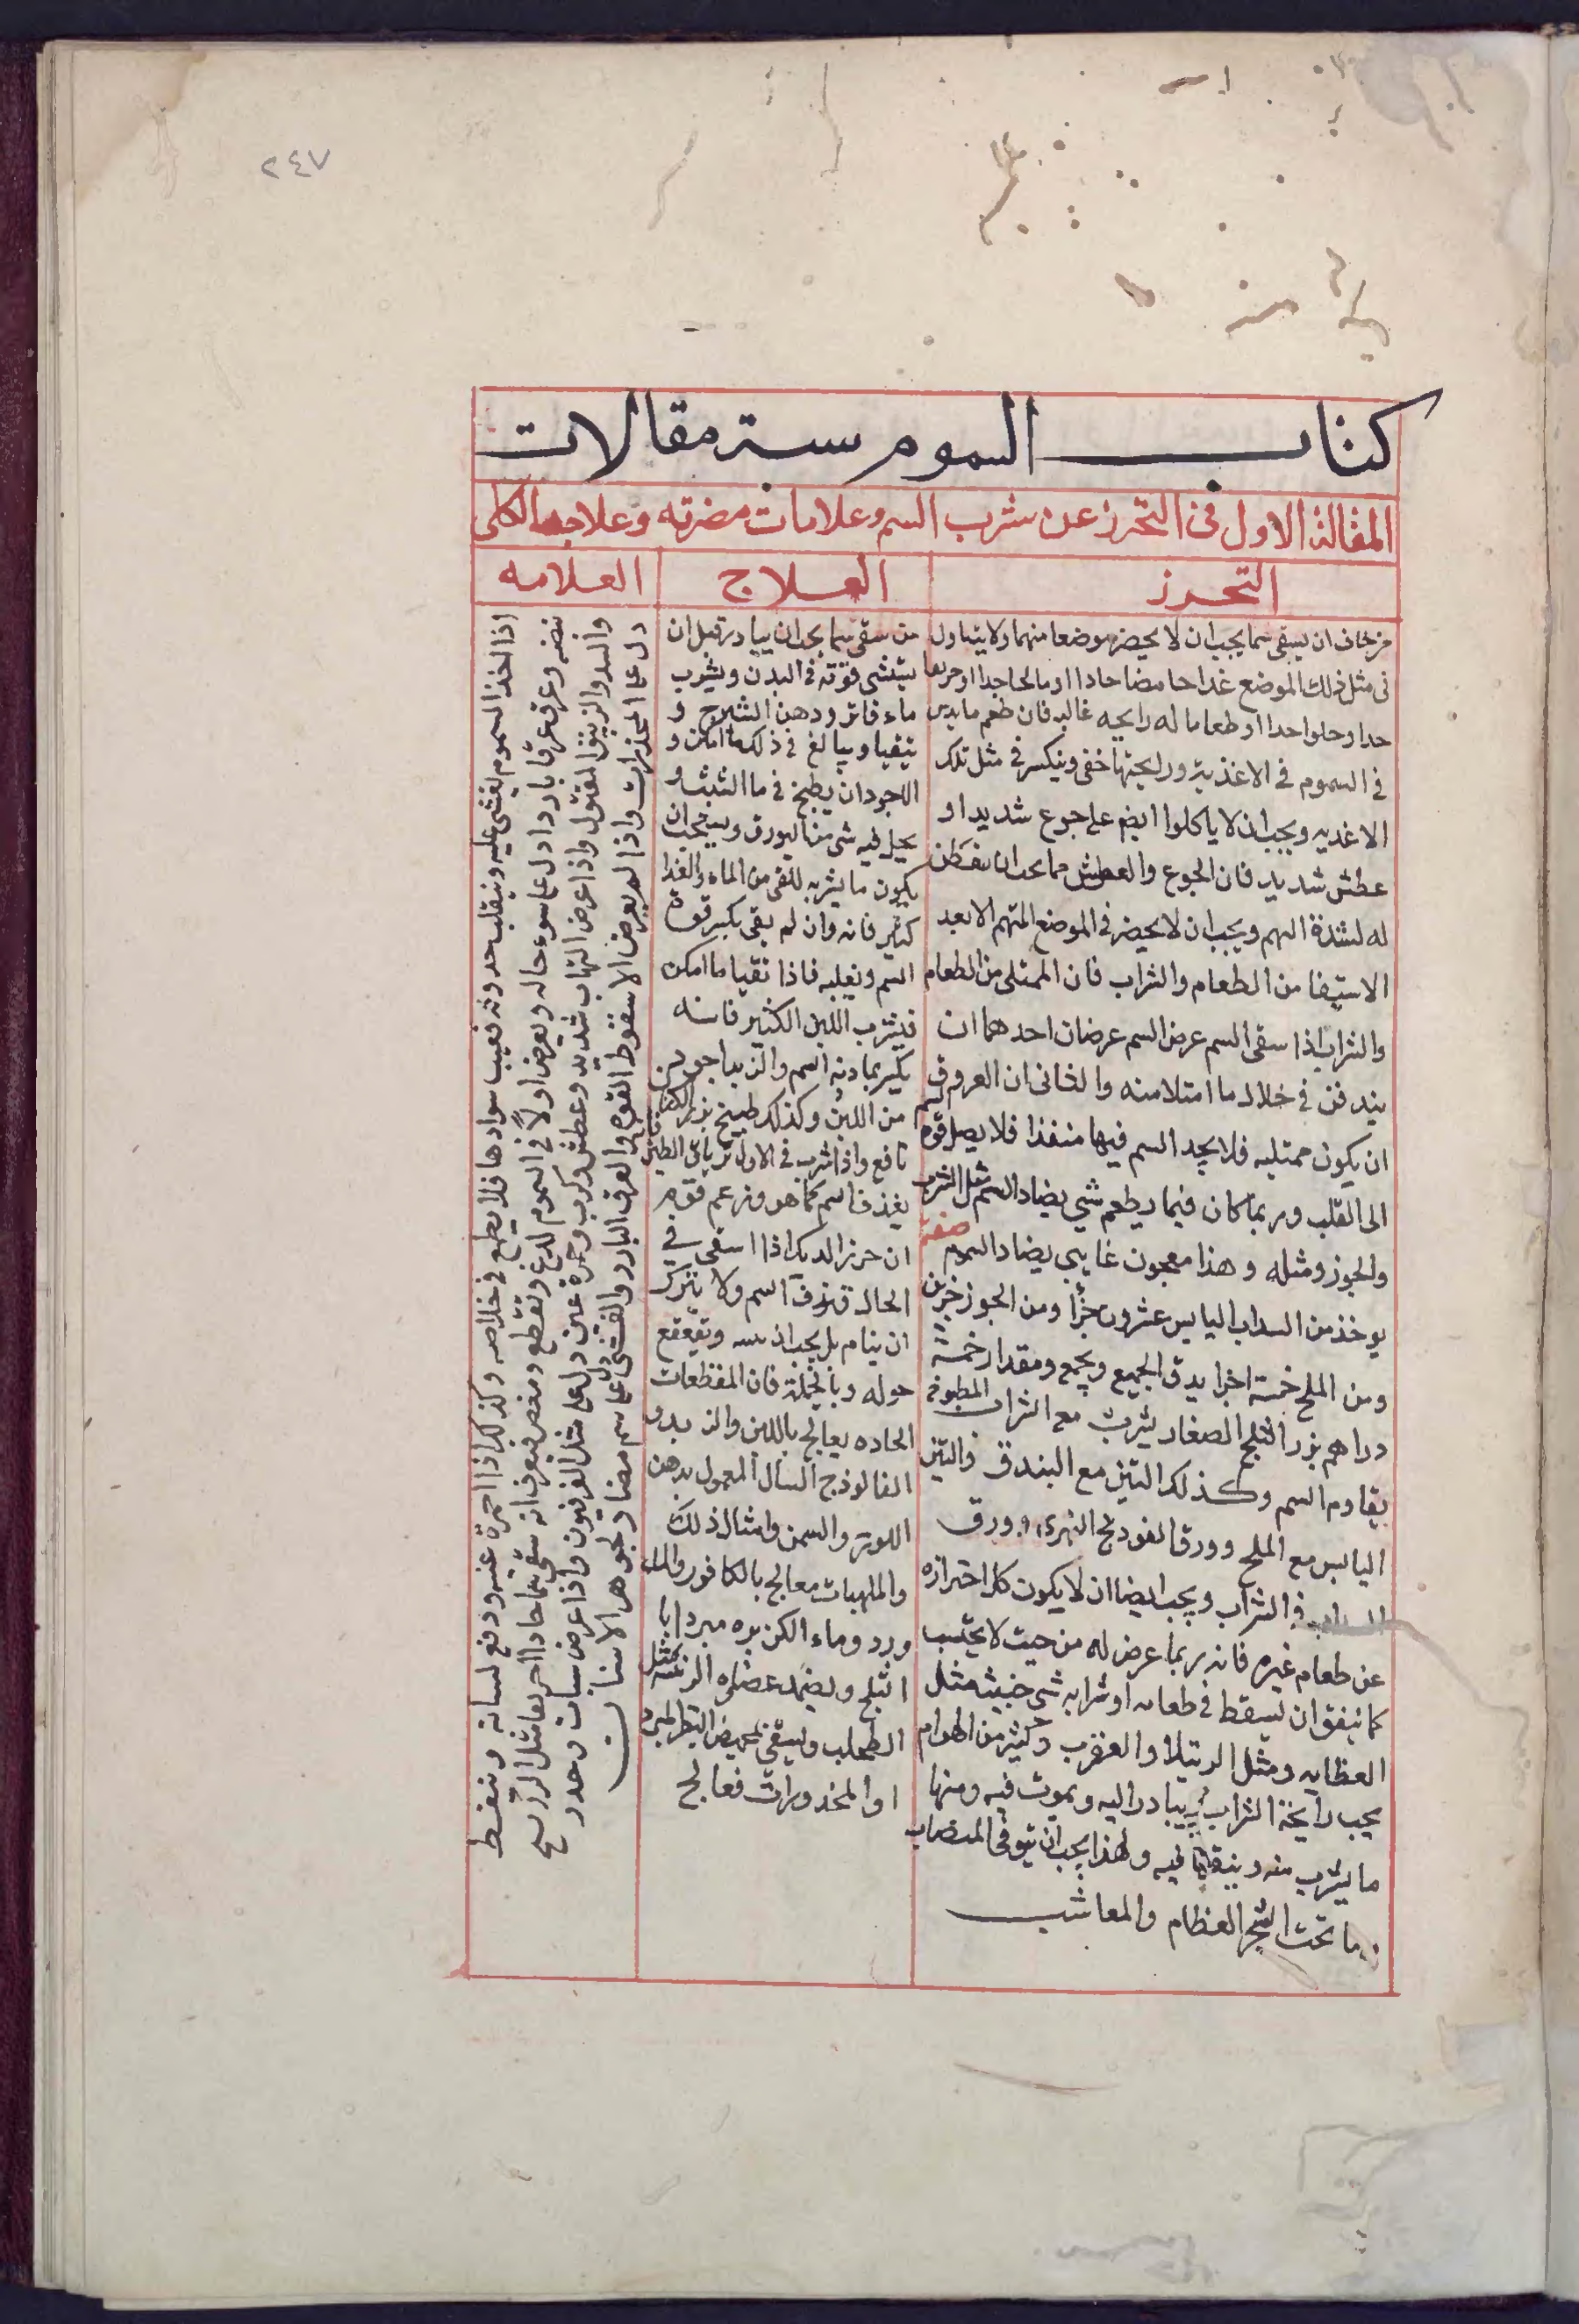 ٢٤٧
كتاب السموم ستة مقالات
المقالة الاول فى التحرز عن شرب السم وعلامات مضرته وعلاجه الكلى
التحرز
من خاف ان يسقى سما يجب ان لا يحضر موضعا منهما ولا يتناول
فى مثل ذلك الموضع غداحا مضا حادا او مالحا جدا او حريفا
جدا وحلوا جدا او طعاما له رايحه غالبه فان طعم ما يدس
فى السموم فى الاغذية ورايحتها خفى وينكسر فى مثل تلك
الاغديه ويجب ان لا ياكلوا ايضا على جوع شديد او
عطش شديد فان الجوع والعطش مما يجب ان
له لشدة النهم ويجب ان لا يحضر فى الموضع المتهم الا بعد
الاستيفا من الطعام والشراب فان الممتلى من الطعام
والشراب اذا سقى السم عرض السم عرضان احدهما ان
يندفن فى خلال ما امتلا منه والثانى ان العروق
ان يكون ممتليه فلا يجد السم فيها منفذا فلا يصل قوة
الى القلب وربما كان فيما يطعم شي يضاد السم مثل الشراب
والجوز ومثله وهذا معجون غايبى يضاد السموم صفته
يوخذ من السداب اليابس عشرون جزأ ومن الجوز جزين
ومن الملح خمسة اجزا يدق الجميع ويجمع ومقدار خمسة
دراهم بزر الثلجم الصغار يشرب مع الشراب المطبوخ
يقاوم السم وكذلك التين مع البندق والتين
اليابس مع الملح وورق الفودنج النهرى وورق
السداب فى الشراب ويجب ايضا ان لا يكون كل احترازه
عن طعام غيره فانه ربما عرض له من حيث لا يحتسب
كما يتفق ان يسقط فى طعامه او شرابه شي خبيث مثل
العظايه ومثل الرتيلا والعقرب وكثير من الهوام
يحب رايحة الشراب يبادر اليه ويموت فيه ومنها
ما يشرب منه ويتقيا فيه ولهذا يجب ان يتوقى
ما تحت الشجر العظام والمعاشب
العلاج
من سقى سما يجب ان يبادر قبل ان
يتفشى قوته فى البدن ويشرب
ماء فاتر ودهن الشيرج و
يتقيا ويبالغ فى ذلك ما امكن و
الاجود ان يطبخ فى ما الشبث و
يحل فيه شى من البورق ويجب ان
يكون ما يشربه للقى من الماء والغذا
كثير فانه وان لم يقى يكسر قوة
السم ويغلبه فاذا تقيا ما امكن
فيشرب اللبن الكثير فانه
يكسر بمادته السم والزبد اجود من
من اللبن وكذلك طبيخ بزر الكتان
نافع واذا شرب فى الاول ترياق الطين فانه
يغذفا سم كما هو وزعم قوم
ان خرز الديك اذا اسقى فى
الحال قذف السم ولا يترك
ان ينام بل يجب ان ينبه ويقعقع
حوله وبالجملة فان المقطعات
الحاده يعالج باللبن والزبد و
الفالوذج السال المعمول بدهن
اللوز والسمن وامثال ذلك
والملهبات معالج بالكافور والماء
ورد وماء الكزبره مبردا با
الثلج ويضمد عضلوه الرئسه بمثل
الطحلب ويسقى البقر المبرد
او المخدورات فعالج
العلامه
اذا اخذ السموم يغشى عليه وينقلب حدوقه فيغيب سوادها فلا يطمع فى خلاصه وكذلك اذا احمرة عينه ودفع لسانه وسقط
نبضه وعرق عرقا باردا دل على سوء حاله ويعرض اولا فى السموم لدغ وتقطع ومغص فيعرف انه سقى سما حادا حريفا مثل الزرنيخ
والسد والزيبق المقتول واذا عرض التهاب شديد وعطش وكرب وحمرة عين دل على مثل الفرفيون واذا عرض سبات وخدر
دل على المخذرات واذا لم يعرض الا سقوط القوه والعرق البارد والغشى دل على سم مضاد لجوهر الانسان